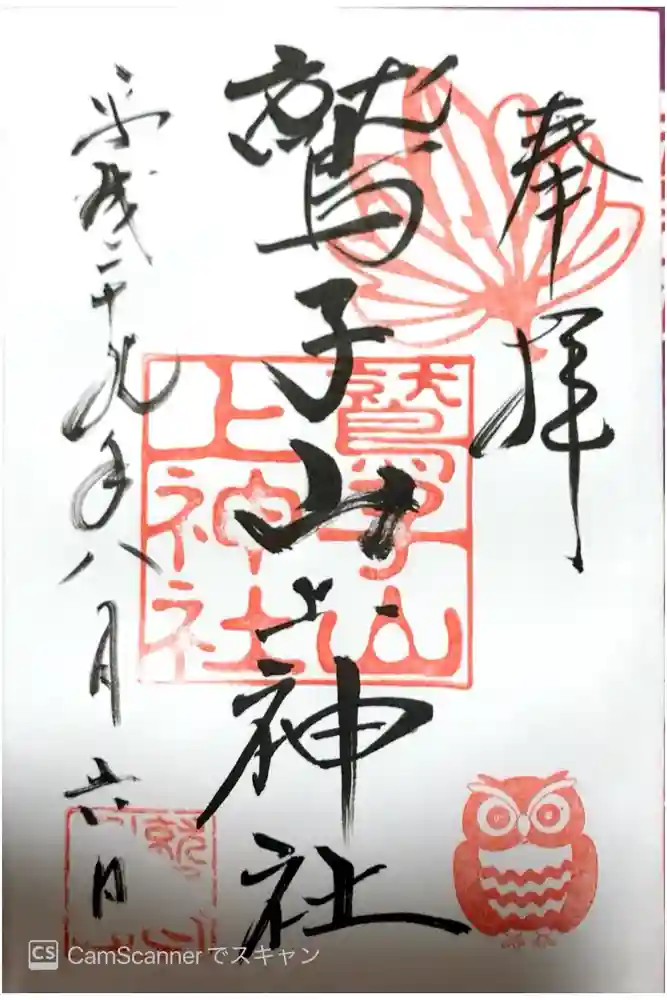 奉拝
鷲子山上神社
平成二十九年八月六日
鷲子山
上神社
CS CamScannerでスキャン